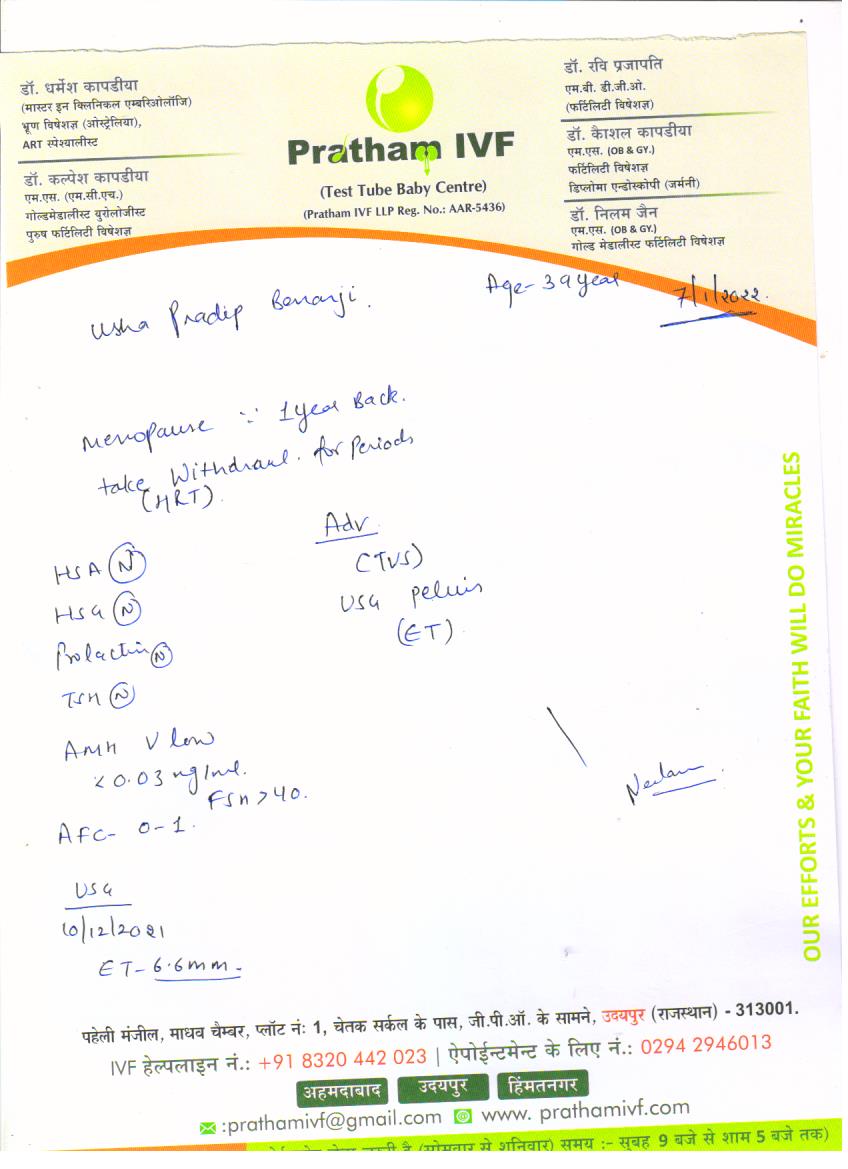 डॉ. धर्मेश कापडीया
(मास्टर इन क्लिनिकल एम्बरिओलॉजि)
भ्रूण विषेशज्ञ (ओस्ट्रेलिया),
ART स्पेश्यालीस्ट
डॉ. कल्पेश कापडीया
एम.एस. (एम.सी.एच.)
गोल्डमेडालीस्ट युरोलोजीस्ट
पुरुष फर्टिलिटी विषेशज्ञ
Pratham IVF
(Test Tube Baby Centre)
(Pratham IVF LLP Reg. No.: AAR-5436)
डॉ. रवि प्रजापति
एम.बी. डी.जी.ओ.
(फर्टिलिटी विषेशज्ञ)
डॉ. कैाशल कापडीया
एम.एस. (OB & GY.)
फर्टिलिटी विषेशज्ञ
डिप्लोमा एन्डोस्कोपी (जर्मनी)
डॉ. निलम जैन
एम.एस. (OB & GY.)
गोल्ड मेडालीस्ट फर्टिलिटी विषेशज्ञ
Usha Pradip Benarji.
Age- 39 year
7/1/2022.
Menopause 1 year Back.
take Withdrawl. for Periods
(HRT).
HSA (N)
HSG (N)
Prolactin (N)
TSH (N)
AMH V low
<0.03 ng/ml.
FSH >40.
AFC- 0-1.
USG
10/12/2021
ET- 6.6mm-
Adv
(TVS)
USG pelvis
(ET)
Neelam
OUR EFFORTS & YOUR FAITH WILL DO MIRACLES
पहेली मंजील, माधव चैम्बर, प्लॉट नंः 1, चेतक सर्कल के पास, जी.पी.ऑ. के सामने, उदयपुर (राजस्थान) - 313001.
IVF हेल्पलाइन नं.: +91 8320 442 023 | ऐपोईन्टमेन्ट के लिए नं.: 0294 2946013
अहमदाबाद उदयपुर हिंमतनगर
:prathamivf@gmail.com www. prathamivf.com
(सोमवार से शनिवार) समय :- सुबह 9 बजे से शाम 5 बजे तक)